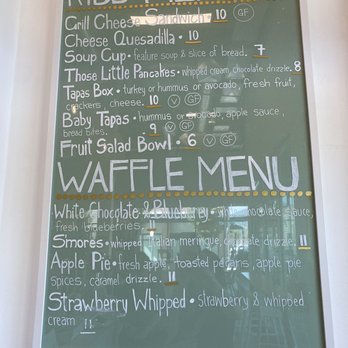 Grill Cheese Sandwich • 10 GF
Cheese Quesadilla • 10
Soup Cup • feature soup & slice of bread. 7
Those Little Pancakes • whipped cream, chocolate drizzle. 8
Tapas Box • turkey or hummus or avocado, fresh fruit,
crackers cheese. 10 V GF
Baby Tapas • hummus or avocado, apple sauce,
bread bites. 9 V GF
Fruit Salad Bowl • 6 V GF
WAFFLE MENU
White chocolate & Blueberry • white chocolate sauce,
fresh blueberries. 11
S'mores • whipped italian meringue, chocolate drizzle. 11
Apple Pie • fresh apple, toasted pecans, apple pie
spices, caramel drizzle. 11
Strawberry Whipped • strawberry & whipped
cream 11